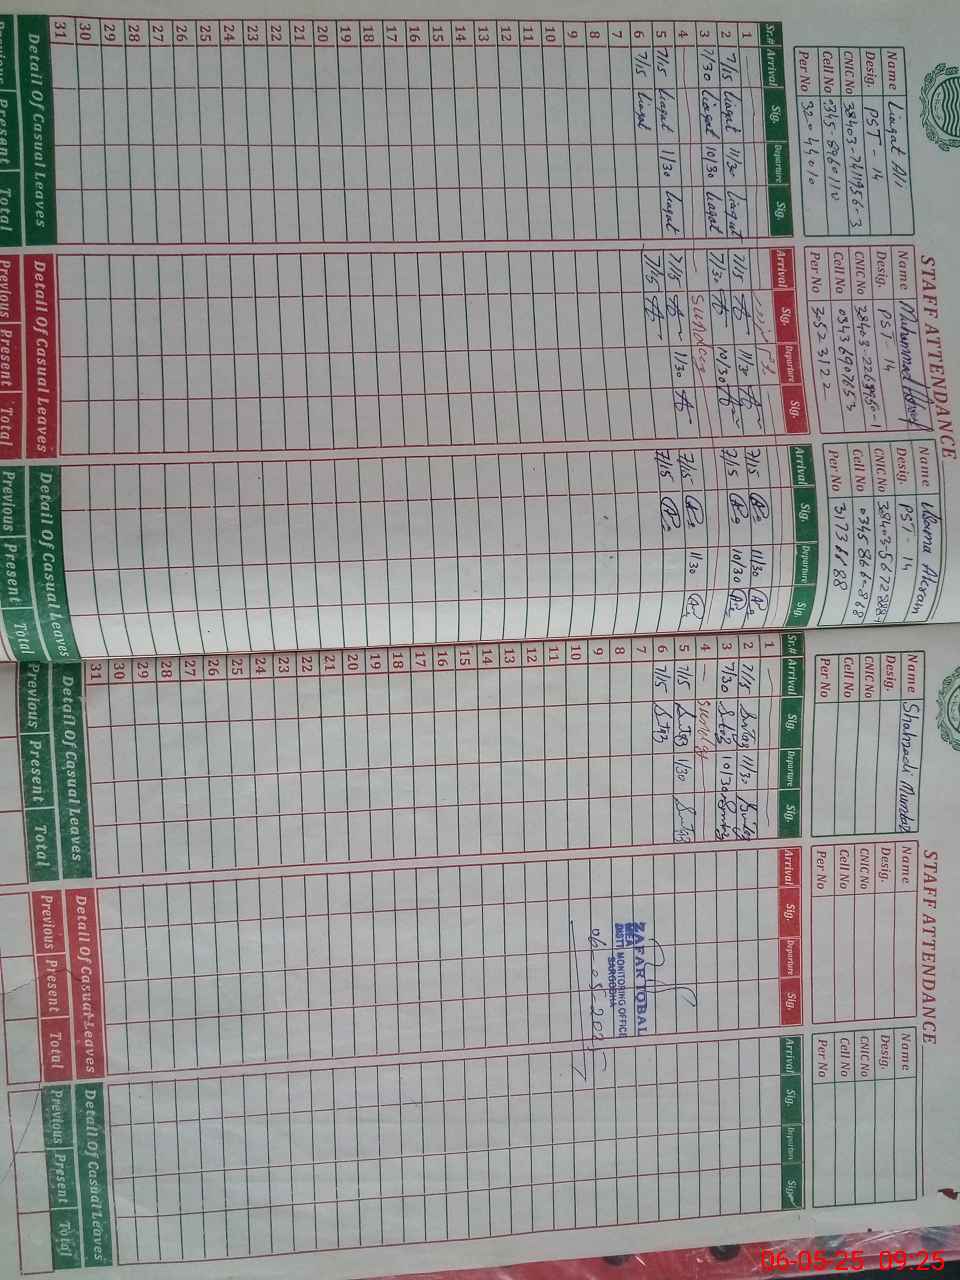 STAFF ATTENDANCE
Name Liaqat Ali
Desig. PST - 14
CNIC No 38403-7411956-3
Cell No 0345-8960110
Per No 32044010
Name Muhammad
Desig. PST - 14
CNIC No
Cell No 03436907653
Per No 3523122
Name Usama Akram
Desig. PST - 14
CNIC No
Cell No
Per No
Sr.# Arrival Sig. Departure Sig. Arrival Sig. Departure Sig. Arrival Sig. Departure Sig.
1
2 7/15 Liaqat 11/30 Liaqat 7/15 11/30 7/15 11/30
3 7/30 Liaqat 10/30 Liaqat 7/30 10/30 7/15 10/30
4 Sunday
5 7/15 Liaqat 1/30 Liaqat 7/15 1/30 7/15 11/30
6 7/15 Liaqat 7/15 7/15
7
8
9
10
11
12
13
14
15
16
17
18
19
20
21
22
23
24
25
26
27
28
29
30
31
Detail Of Casual Leaves Detail Of Casual Leaves Detail Of Casual Leaves
Previous Present Total Previous Present Total Previous Present Total
STAFF ATTENDANCE
Name Shahzadi Mumtaz
Desig.
CNIC No
Cell No
Per No
Name
Desig.
CNIC No
Cell No
Per No
Name
Desig.
CNIC No
Cell No
Per No
Sr.# Arrival Sig. Departure Sig. Arrival Sig. Departure Sig. Arrival Sig. Departure Sig.
1
2 7/15 11/30
3 7/30 10/30
4 Sunday
5 7/15 1/30
6 7/15
7
8
9
10
11
12
13
14
15
16
17
18
19
20
21
22
23
24
25
26
27
28
29
30
31
ZAFAR IQBAL
MEA
DISTT MONITORING OFFICE
SARGODHA
06-05-2025
Detail Of Casual Leaves Detail Of Casual Leaves Detail Of Casual Leaves
Previous Present Total Previous Present Total Previous Present Total
06-05-25 09:25